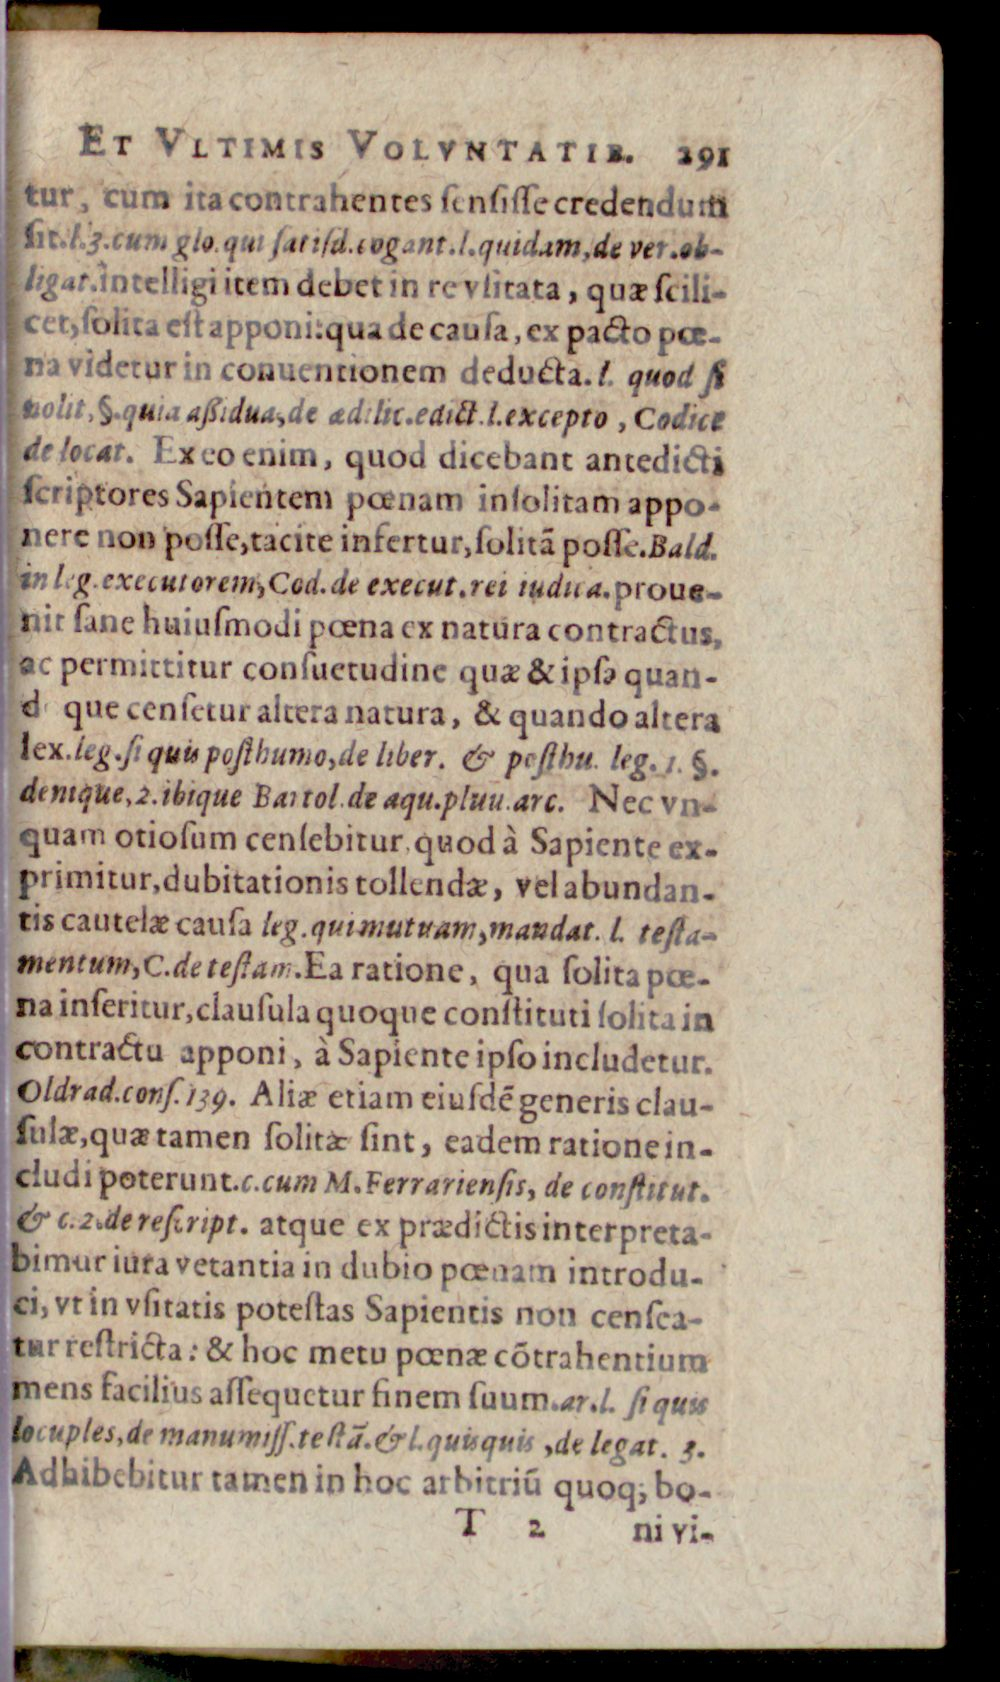 ET VLTIMIS VOLVNTATIB. 291
tur, cum ita contrahentes ſenſiſſe credendum
ſit.l.3.cum glo.qui ſatiſd.cogant.l.quidam,de ver.ob-
ligat.intelligi item debet in re vſitata, quæ ſcili-
cet,ſolita eſt apponi:qua de cauſa, ex pacto pœ-
na videtur in conuentionem deducta.l. quod ſi
nolit, §.quia aßidua,de ædilic.edict.l.excepto, Codice
de locat. Ex eo enim, quod dicebant antedicti
ſcriptores Sapientem pœnam inſolitam appo-
nere non poſſe,tacite infertur,ſolitã poſſe.Bald.
in leg.executorem,Cod.de execut.rei iudica.proue-
nit ſane huiuſmodi pœna ex natura contractus,
ac permittitur conſuetudine quæ & ipſa quan-
d que cenſetur altera natura, & quando altera
lex.leg.ſi quis poſthumo,de liber. & poſthu. leg. 1. §.
denique,2.ibique Bartol.de aqu.pluu.arc. Nec vn-
quam otioſum cenſebitur, quod à Sapiente ex-
primitur,dubitationis tollendæ, vel abundan-
tis cautelæ cauſa leg.qui mutuam,mandat. l. teſta-
mentum,C.de teſtam.Ea ratione, qua ſolita pœ-
na inſeritur,clauſula quoque conſtituti ſolita in
contractu apponi, à Sapiente ipſo includetur.
Oldrad.conſ.139. Aliæ etiam eiuſdẽ generis clau-
ſulæ,quæ tamen ſolitæ ſint, eadem ratione in-
cludi poterunt.c.cum M.Ferrarienſis, de conſtitut.
& c.2.de reſcript. atque ex prædictis interpreta-
bimur iura vetantia in dubio pœnam introdu-
ci, vt in vſitatis poteſtas Sapientis non cenſea-
tur reſtricta: & hoc metu pœnæ cõtrahentium
mens facilius aſſequetur finem ſuum.ar.l. ſi quis
locuples,de manumiſſ.teſtã.& l.quisquis,de legat. 3.
Adhibebitur tamen in hoc arbitriũ quoq; bo-
T 2 ni vi-